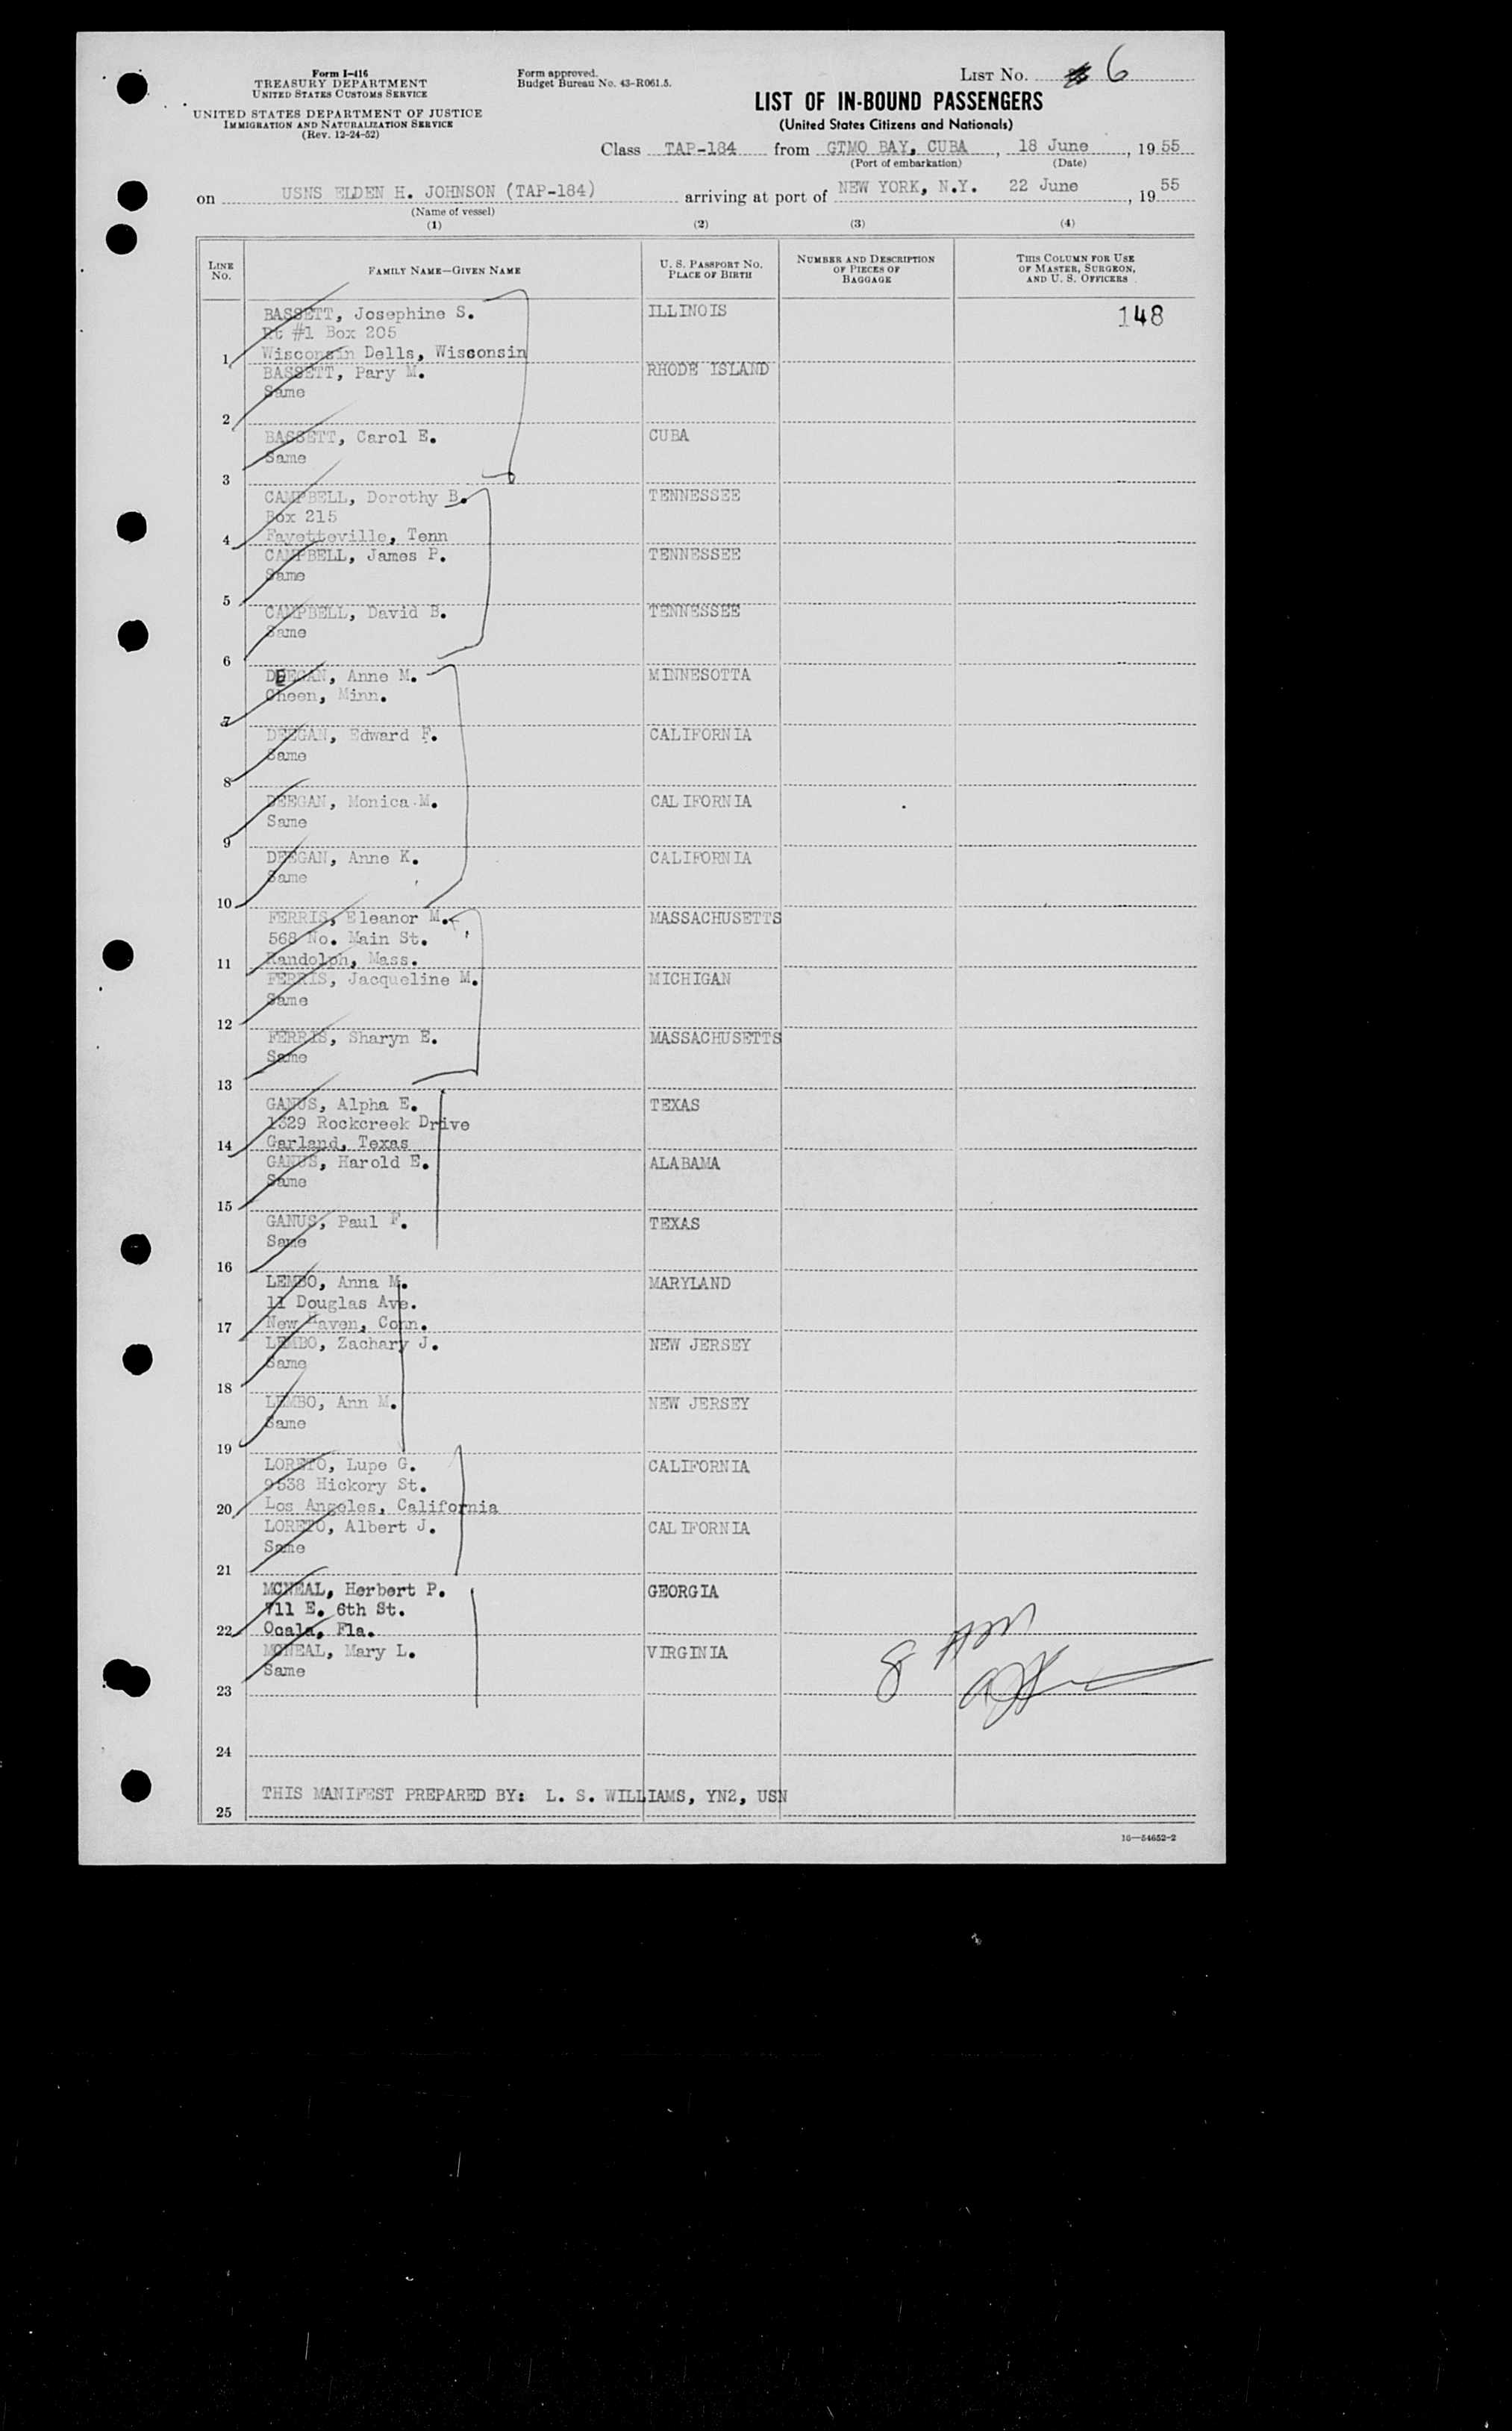 Form I-416
TREASURY DEPARTMENT
UNITED STATES CUSTOMS SERVICE
UNITED STATES DEPARTMENT OF JUSTICE
IMMIGRATION AND NATURALIZATION SERVICE
(Rev. 12-24-52)
Form approved.
Budget Bureau No. 43-R061.5.
LIST NO. 6
LIST OF IN-BOUND PASSENGERS
(United States Citizens and Nationals)
Class TAP-184 from GTMO BAY, CUBA, 18 June, 1955
(Port of embarkation) (Date)
on USNS ELDEN H. JOHNSON (TAP-184) arriving at port of NEW YORK, N.Y. 22 June, 1955
(Name of vessel)
(1) (2) (3) (4)
LINE NO.
FAMILY NAME—GIVEN NAME
U. S. PASSPORT NO.
PLACE OF BIRTH
NUMBER AND DESCRIPTION
OF PIECES OF
BAGGAGE
THIS COLUMN FOR USE
OF MASTER, SURGEON,
AND U. S. OFFICERS
BASSETT, Josephine S. ILLINOIS 148
Rt #1 Box 205
1 Wisconsin Dells, Wisconsin
BASSETT, Pary M. RHODE ISLAND
Same
2
BASSETT, Carol E. CUBA
Same
3
CAMPBELL, Dorothy B. TENNESSEE
Box 215
4 Fayetteville, Tenn
CAMPBELL, James P. TENNESSEE
Same
5
CAMPBELL, David B. TENNESSEE
Same
6
DEEGAN, Anne M. MINNESOTTA
Cheen, Minn.
7
DEEGAN, Edward F. CALIFORNIA
Same
8
DEEGAN, Monica M. CALIFORNIA
Same
9
DEEGAN, Anne K. CALIFORNIA
Same
10
FERRIS, Eleanor M. MASSACHUSETTS
568 No. Main St.
11 Randolph, Mass.
FERRIS, Jacqueline M. MICHIGAN
Same
12
FERRIS, Sharyn E. MASSACHUSETTS
Same
13
GANUS, Alpha E. TEXAS
1329 Rockcreek Drive
14 Garland, Texas
GANUS, Harold E. ALABAMA
Same
15
GANUS, Paul F. TEXAS
Same
16
LEMBO, Anna M. MARYLAND
11 Douglas Ave.
17 New Haven, Conn.
LEMBO, Zachary J. NEW JERSEY
Same
18
LEMBO, Ann M. NEW JERSEY
Same
19
LORETO, Lupe G. CALIFORNIA
9538 Hickory St.
20 Los Angeles, California
LORETO, Albert J. CALIFORNIA
Same
21
MCNEAL, Herbert P. GEORGIA
711 E. 6th St.
22 Ocala, Fla.
MCNEAL, Mary L. VIRGINIA
Same
8
23
24
THIS MANIFEST PREPARED BY: L. S. WILLIAMS, YN2, USN
25
16—54652-2